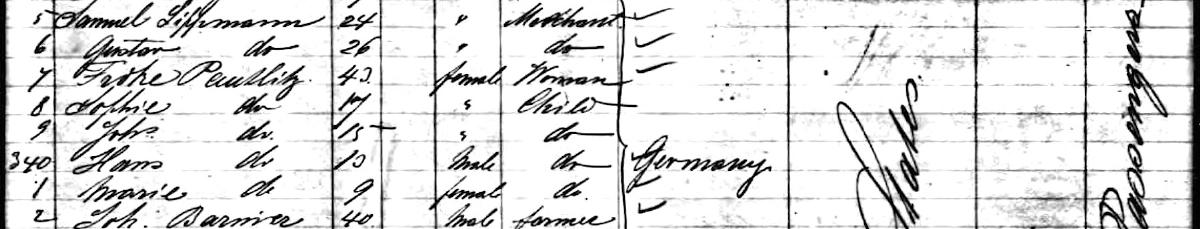 5 Samuel Lippmann 24 " Merchant
6 Gustav do 26 " do
7 Fritze Pautlitz 43 female Woman
8 Sophie do 17 " Child
9 Joh. do. 15 " do
340 Hans do 13 Male do Germany
1 Marie do 9 female do.
2 Joh. Barnier 40 Male farmer
States
Passengers